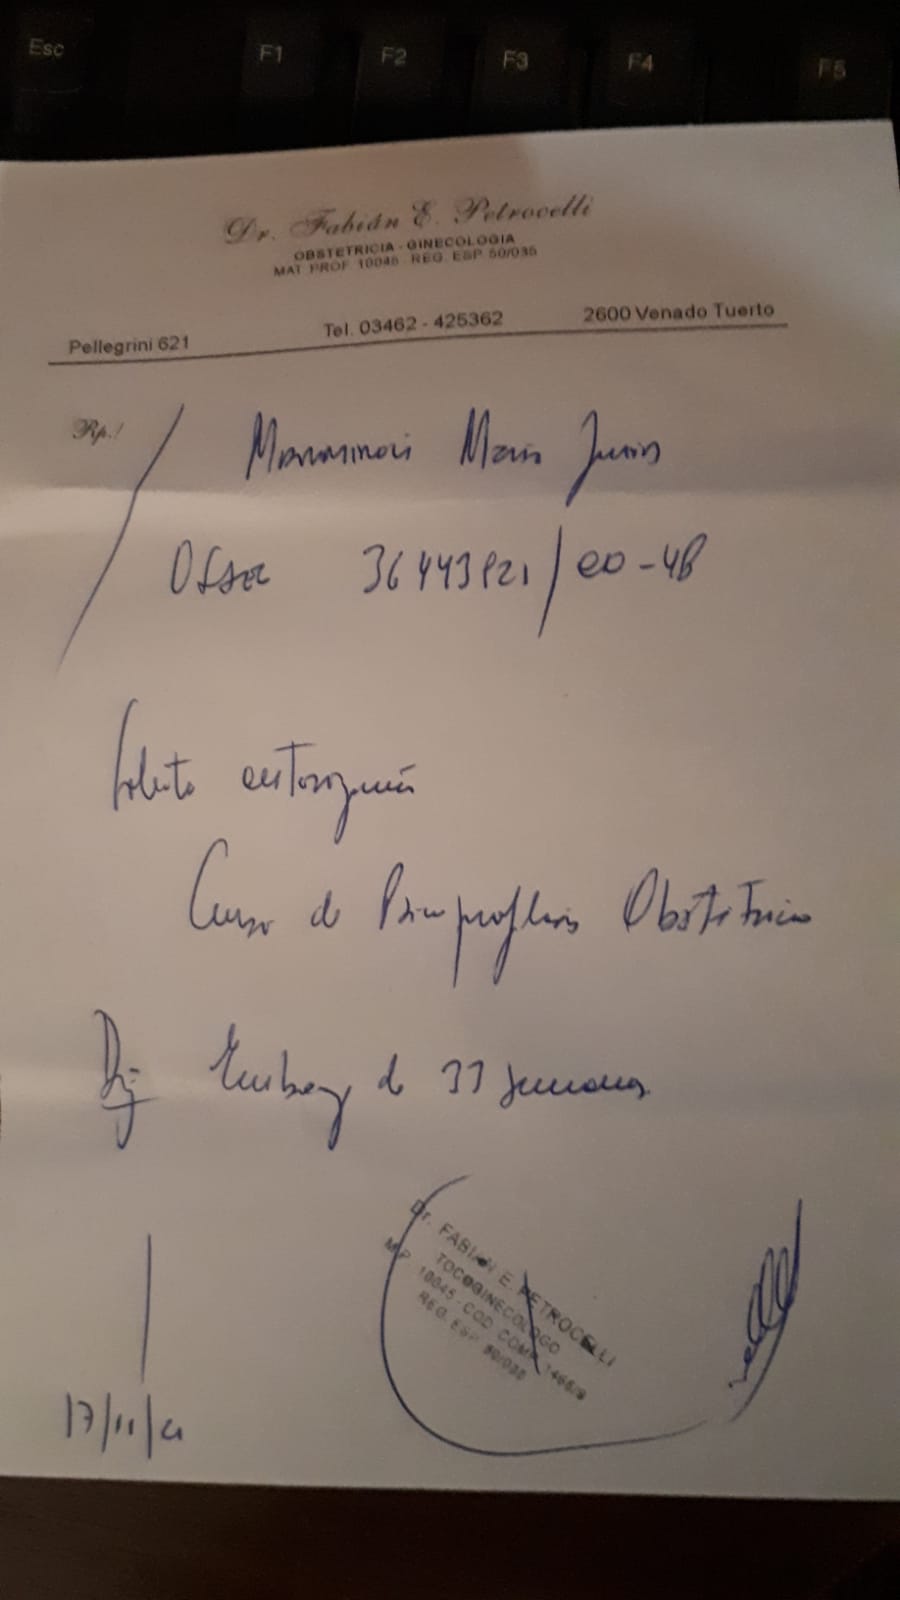 Esc F1 F2 F3 F4 F5
Dr. Fabián E. Petrocelli
OBSTETRICIA - GINECOLOGIA
MAT. PROF. 10045 REG. ESP. 50/035
Pellegrini 621 Tel. 03462 - 425362 2600 Venado Tuerto
Rp./
Solicito autorización
Curso de Psicoprofilaxis Obstetrica
Dg Embarazo de 33 semanas
Dr. FABIAN E. PETROCELLI
TOCOGINECOLOGO
M.P. 10045 - COD. COMP.
REG. ESP. 50/035
17/11/21